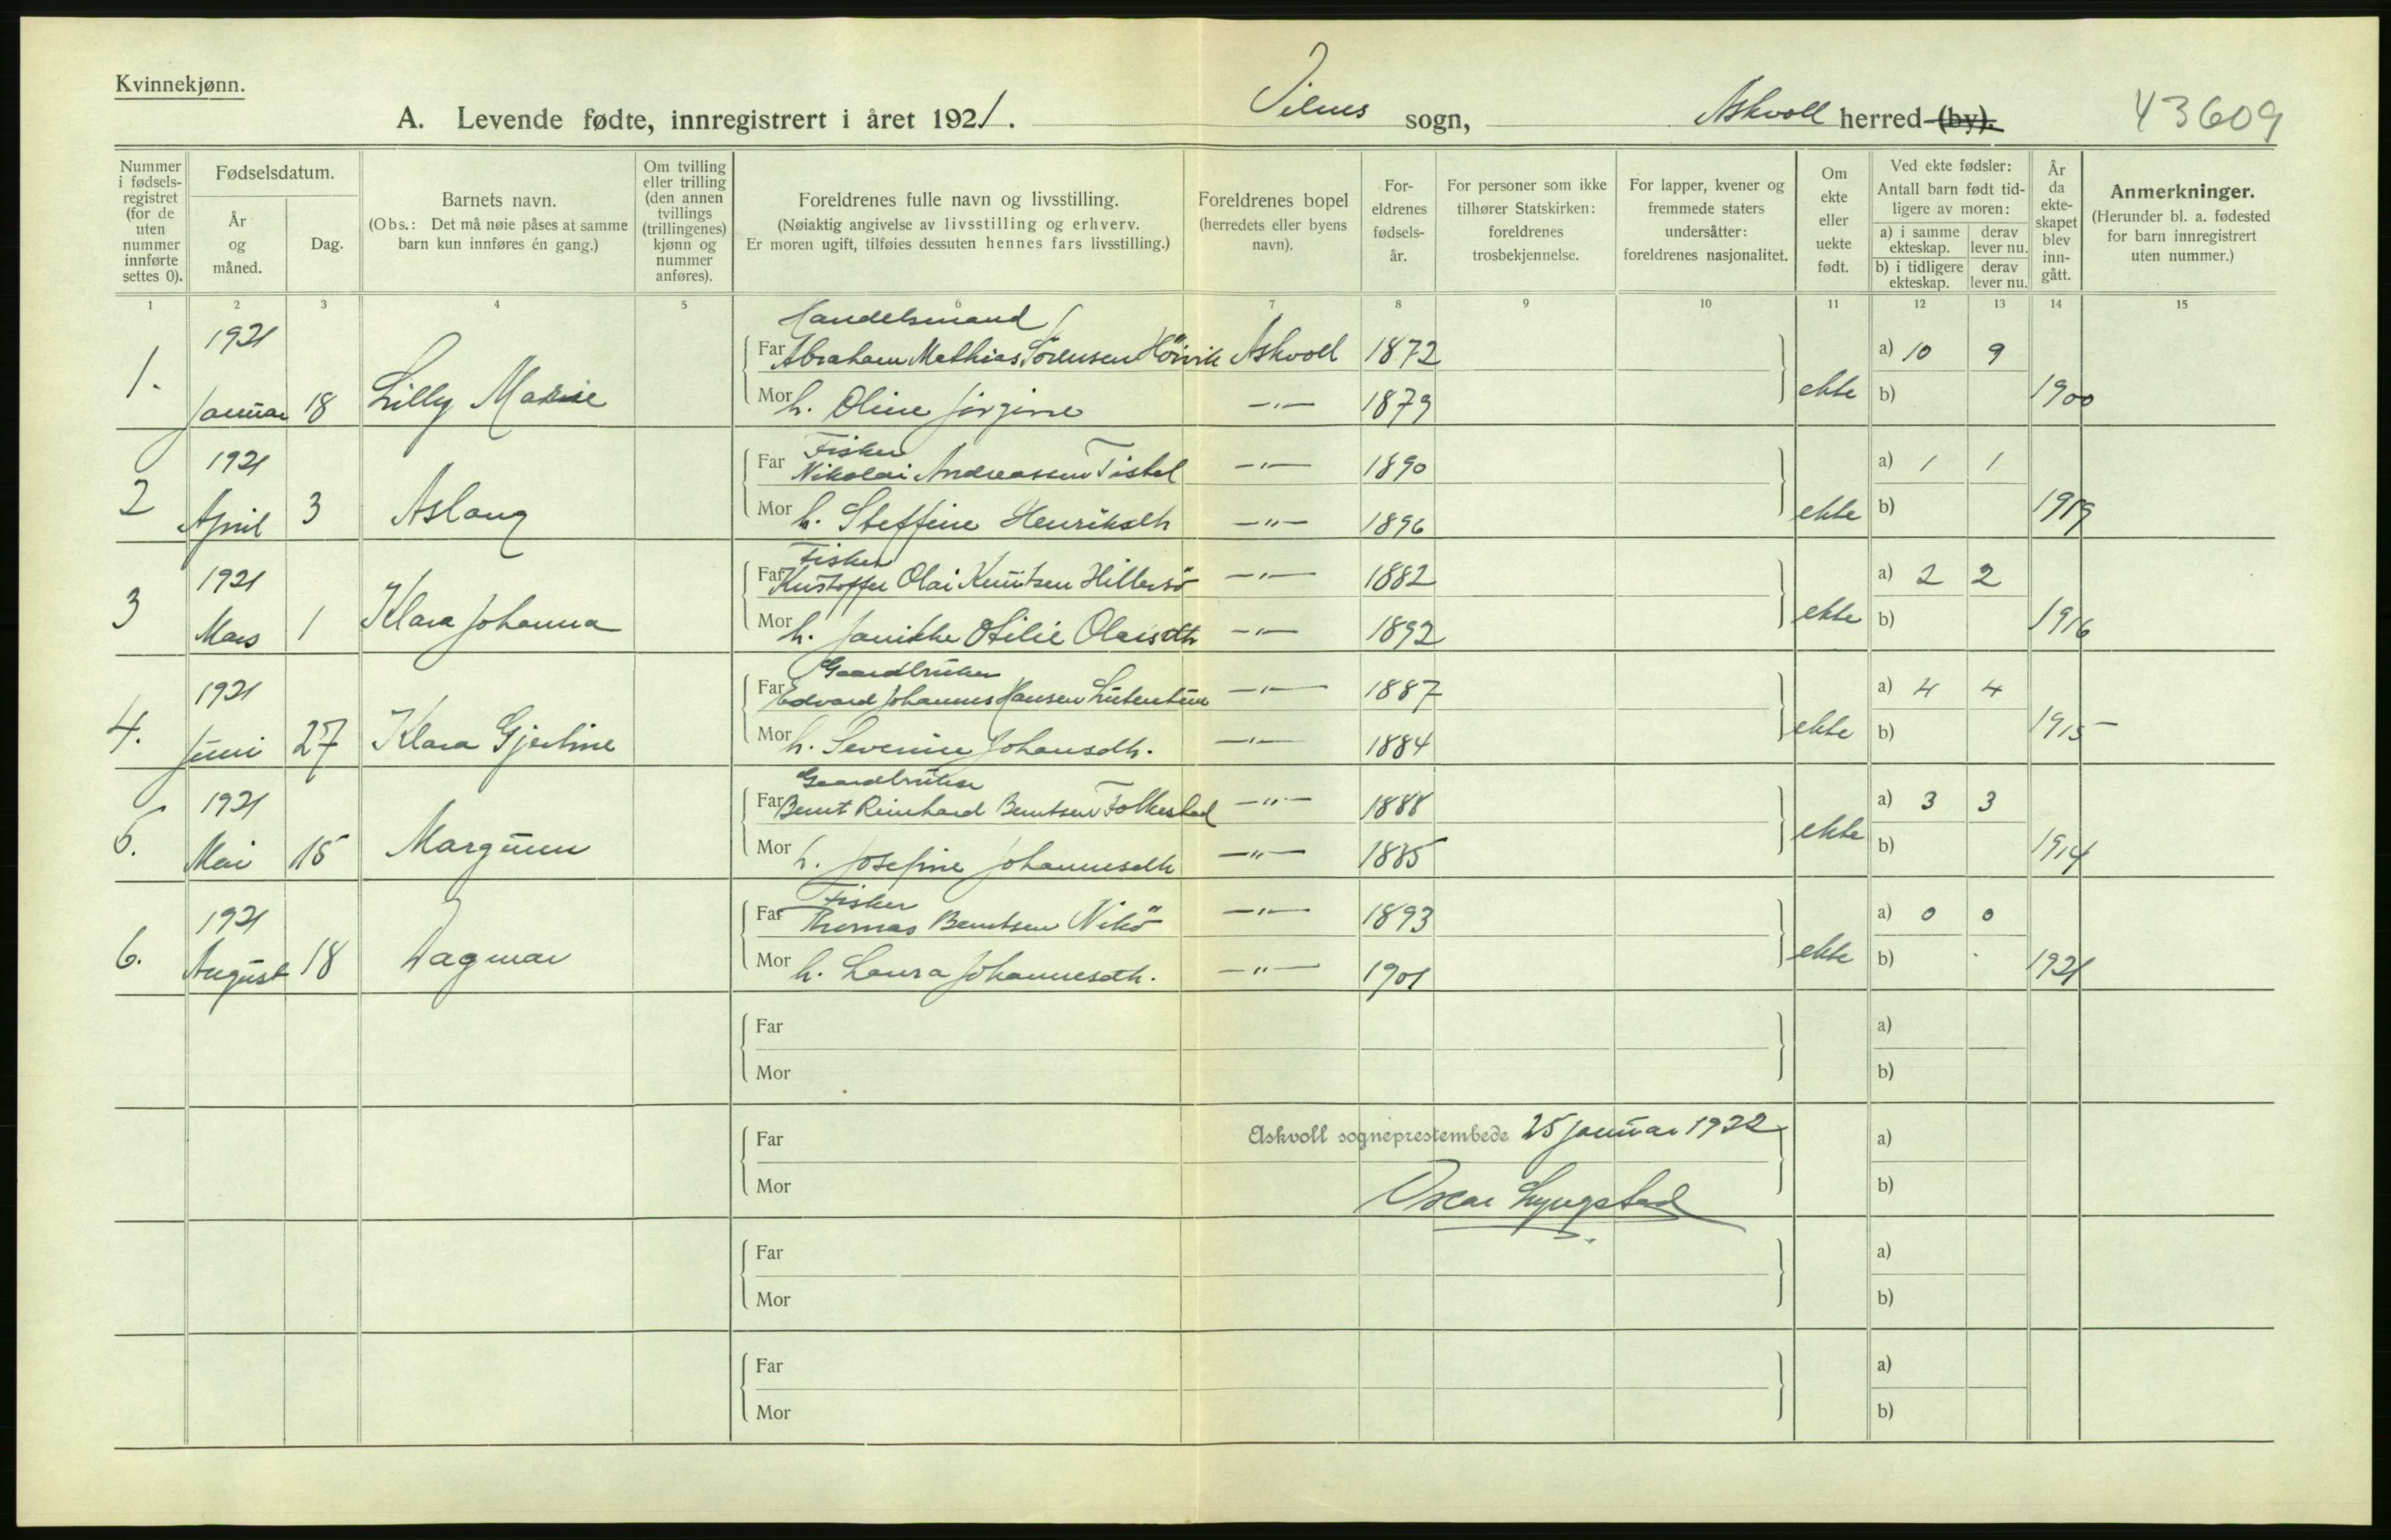 Kvinnekjønn.
A. Levende fødte, innregistrert i året 1921. Vilnes sogn, Askvoll herred (by). 43609
Nummer i fødsels-registret (for de uten nummer innførte settes 0).
Fødselsdatum.
År og måned.
Dag.
Barnets navn.
(Obs.: Det må nøie påses at samme barn kun innføres én gang.)
Om tvilling eller trilling (den annen tvillings (trillingenes) kjønn og nummer anføres).
Foreldrenes fulle navn og livsstilling.
(Nøiaktig angivelse av livsstilling og erhverv.
Er moren ugift, tilføies dessuten hennes fars livsstilling.)
Foreldrenes bopel
(herredets eller byens navn).
For-eldrenes fødsels-år.
For personer som ikke tilhører Statskirken: foreldrenes trosbekjennelse.
For lapper, kvener og fremmede staters undersåtter: foreldrenes nasjonalitet.
Om ekte eller uekte født.
Ved ekte fødsler:
Antall barn født tid-ligere av moren:
a) i samme ekteskap.
derav lever nu.
b) i tidligere ekteskap.
derav lever nu.
År da ekte-skapet blev inn-gått.
Anmerkninger.
(Herunder bl. a. fødested for barn innregistrert uten nummer.)
1 2 3 4 5 6 7 8 9 10 11 12 13 14 15
Handelsmand
1921 Far Abraham Mathias Sörensen Hörvik Askvoll 1872 a) 10 9
1. Januar 18 Lilly Marie Mor h. Oline Jörgine —„— 1879 ekte b) 1900
Fisker
1921 Far Nikolai Andreassen Tistel —„— 1890 a) 1 1
2 April 3 Aslaug Mor h. Steffine Henriksdtr —„— 1896 ekte b) 1919
Fisker
1921 Far Kristoffer Olai Knutsen Hillersö —„— 1882 a) 2 2
3 Mars 1 Klara Johanna Mor h. Janikke Otilie Olaisdtr —„— 1892 ekte b) 1916
Gaardbruker
1921 Far Edvard Johannes Hansen —„— 1887 a) 4 4
4. Juni 27 Klara Gjertine Mor h. Severine Johansdtr. —„— 1884 ekte b) 1915
Gaardbruker
1921 Far Bernt Reinhard Berntsen Folkestad —„— 1888 a) 3 3
5. Mai 15 Margunn Mor h. Josefine Johannesdtr —„— 1885 ekte b) 1914
Fisker
1921 Far Thomas Berntsen Nikö —„— 1893 a) 0 0
6. August 18 Dagmar Mor h. Laura Johannesdtr. —„— 1901 ekte b) 1921
Far a)
Mor b)
Far Askvoll sogneprestembede 25 januar 1922 a)
Mor Oscar Lyngstad b)
Far a)
Mor b)
Far a)
Mor b)